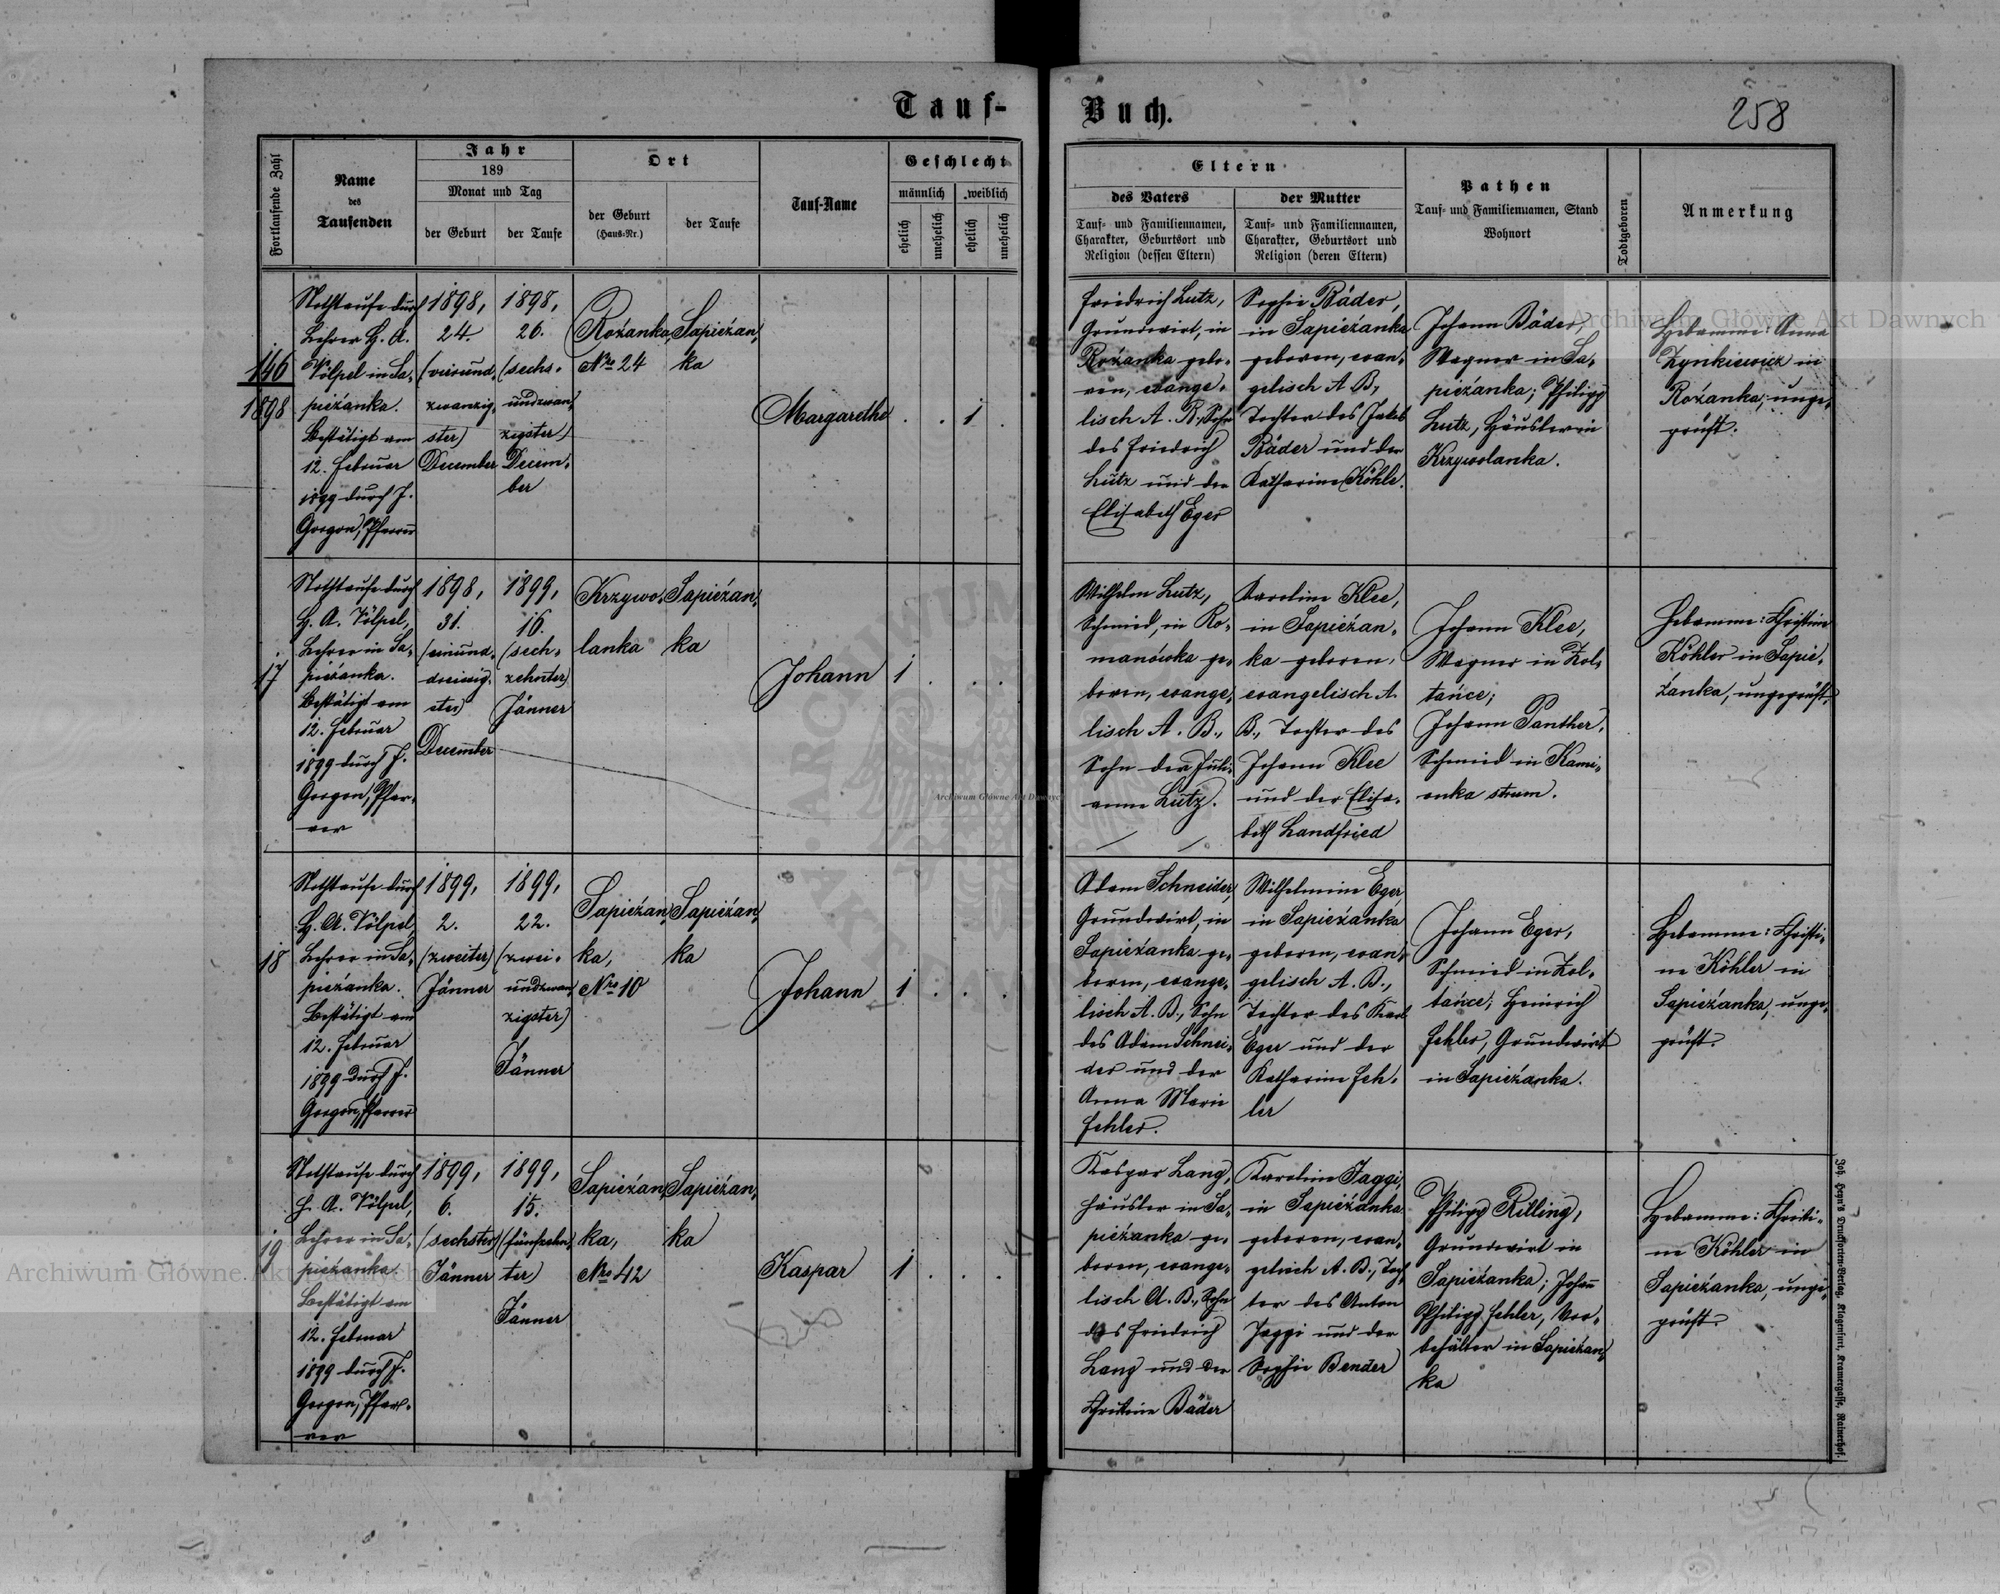 Tauf-
Buch.
258
Fortlaufende Zahl
Name
des
Taufenden
Jahr
189
Monat und Tag
der Geburt
der Taufe
Ort
der Geburt
(Haus-Nr.)
der Taufe
Tauf-Name
Geschlecht
männlich
weiblich
ehelich
unehelich
ehelich
unehelich
Eltern
des Vaters
Tauf- und Familiennamen,
Charakter, Geburtsort und
Religion (dessen Eltern)
der Mutter
Tauf- und Familiennamen,
Charakter, Geburtsort und
Religion (deren Eltern)
Pathen
Tauf- und Familiennamen, Stand
Wohnort
Todtgeboren
Anmerkung
146
1898
Nothtaufe durch
Lehrer H. A.
Völpel in Sa-
pieżanka.
Bestätigt am
12. Februar
1899 durch J.
Gorgon, Pfarrer
1898,
24.
(vierund-
zwanzig-
ster)
December
1898,
26.
(sechs-
undzwan-
zigster)
Decem-
ber
Rożanka,
Nro 24
Sapieżan-
ka
Margarethe
1
Friedrich Lutz,
Grundwirt, in
Rożanka gebo-
ren, evange-
lisch A. B., Sohn
des Friedrich
Lutz und der
Elisabeth Eger
Sophie Bäder,
in Sapieżanka
geboren, evan-
gelisch A. B.,
Tochter des Jakob
Bäder und der
Katharine Köhle.
Johann Bäder,
Wagner in Sa-
pieżanka; Philipp
Lutz, Häusler in
Krzywolanka.
Hebamme: Anna
Zynkiewicz in
Rożanka, unge-
prüft.
17
Nothtaufe durch
H. A. Völpel,
Lehrer in Sa-
pieżanka.
Bestätigt am
12. Februar
1899 durch J.
Gorgon, Pfar-
rer
1898,
31.
(einund-
dreissig-
ster)
December
1899,
16.
(sech-
zehnter)
Jänner
Krzywo-
lanka
Sapieżan-
ka
Johann
1
Wilhelm Lutz,
Schmied, in Ro-
manówka ge-
boren, evange-
lisch A. B.,
Sohn der Juli-
anne Lutz.
Karoline Klee,
in Sapieżan-
ka geboren,
evangelisch A.
B., Tochter des
Johann Klee
und der Elisa-
beth Landfried
Johann Klee,
Wagner in Żol-
tańce;
Johann Panther,
Schmied in Kami-
onka strum.
Hebamme: Christine
Köhler in Sapie-
żanka, ungeprüft.
18
Nothtaufe durch
H. A. Völpel,
Lehrer in Sa-
pieżanka.
Bestätigt am
12. Februar
1899 durch J.
Gorgon, Pfarrer
1899,
2.
(zweiter)
Jänner
1899,
22.
(zwei-
undzwan-
zigster)
Jänner
Sapieżan-
ka,
Nro 10
Sapieżan-
ka
Johann
1
Adam Schneider,
Grundwirt, in
Sapieżanka ge-
boren, evange-
lisch A. B., Sohn
des Adam Schnei-
der und der
Anna Marie
Fehler.
Wilhelmine Eger,
in Sapieżanka
geboren, evan-
gelisch A. B.,
Tochter des Karl
Eger und der
Katharine Feh-
ler
Johann Eger,
Schmied in Żol-
tańce; Heinrich
Fehler, Grundwirt
in Sapieżanka.
Hebamme: Christi-
ne Köhler in
Sapieżanka, unge-
prüft.
19
Nothtaufe durch
H. A. Völpel,
Lehrer in Sa-
pieżanka.
Bestätigt am
12. Februar
1899 durch J.
Gorgon, Pfar-
rer
1899,
6.
(sechster)
Jänner
1899,
15.
(fünfzehn-
ter)
Jänner
Sapieżan-
ka,
Nro 42
Sapieżan-
ka
Kaspar
1
Kaspar Lang,
Häusler in Sa-
pieżanka ge-
boren, evange-
lisch A. B., Sohn
des Friedrich
Lang und der
Christine Bäder
Karoline Jaggi,
in Sapieżanka
geboren, evan-
gelisch A. B., Toch-
ter des Anton
Jaggi und der
Sophie Bender
Philipp Rilling,
Grundwirt in
Sapieżanka; Johann
Philipp Fehler, Vor-
behälter in Sapieżan-
ka
Hebamme: Christi-
ne Köhler in
Sapieżanka, unge-
prüft.
Joh. Heyn's Drucksorten-Verlag, Klagenfurt, Kramergasse, Rainerhof.
Archiwum Główne Akt Dawnych
Archiwum Główne Akt Dawnych
Archiwum Główne Akt Dawnych